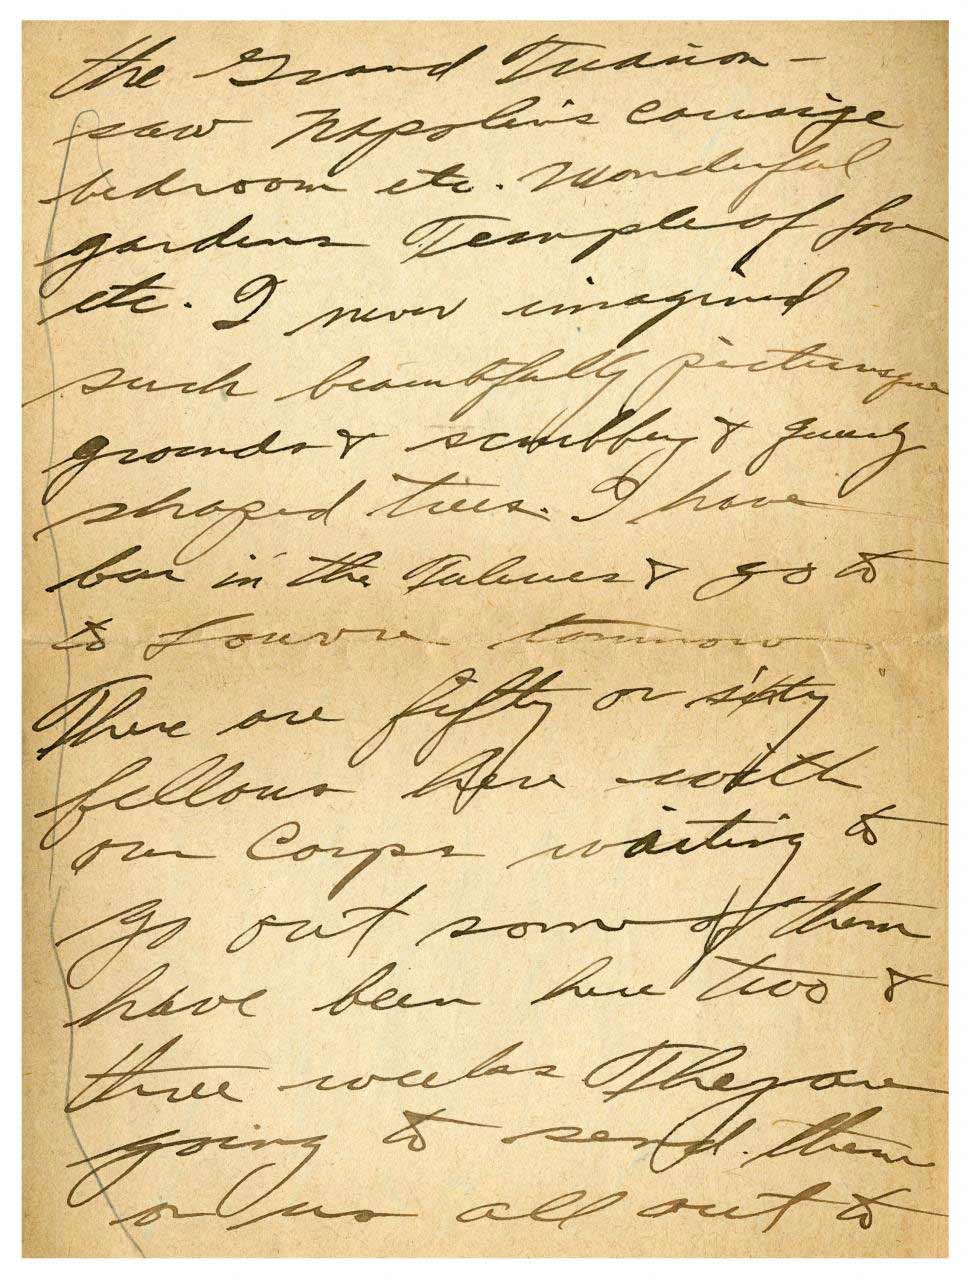 the Grand Trianon -
saw Napolin's carraige
bedroom etc. Wonderful
gardens Temple of Love
etc. I never imagined
such beautifully picturesque
grounds & scrubbery & queerly
shaped trees. I have
been in the Tuleries & go to
to Louvre tommorow
There are fifty or sixty
fellows here with
our Corps waiting to
go out some of them
have been here two &
three weeks They are
going to send them
or us all out to